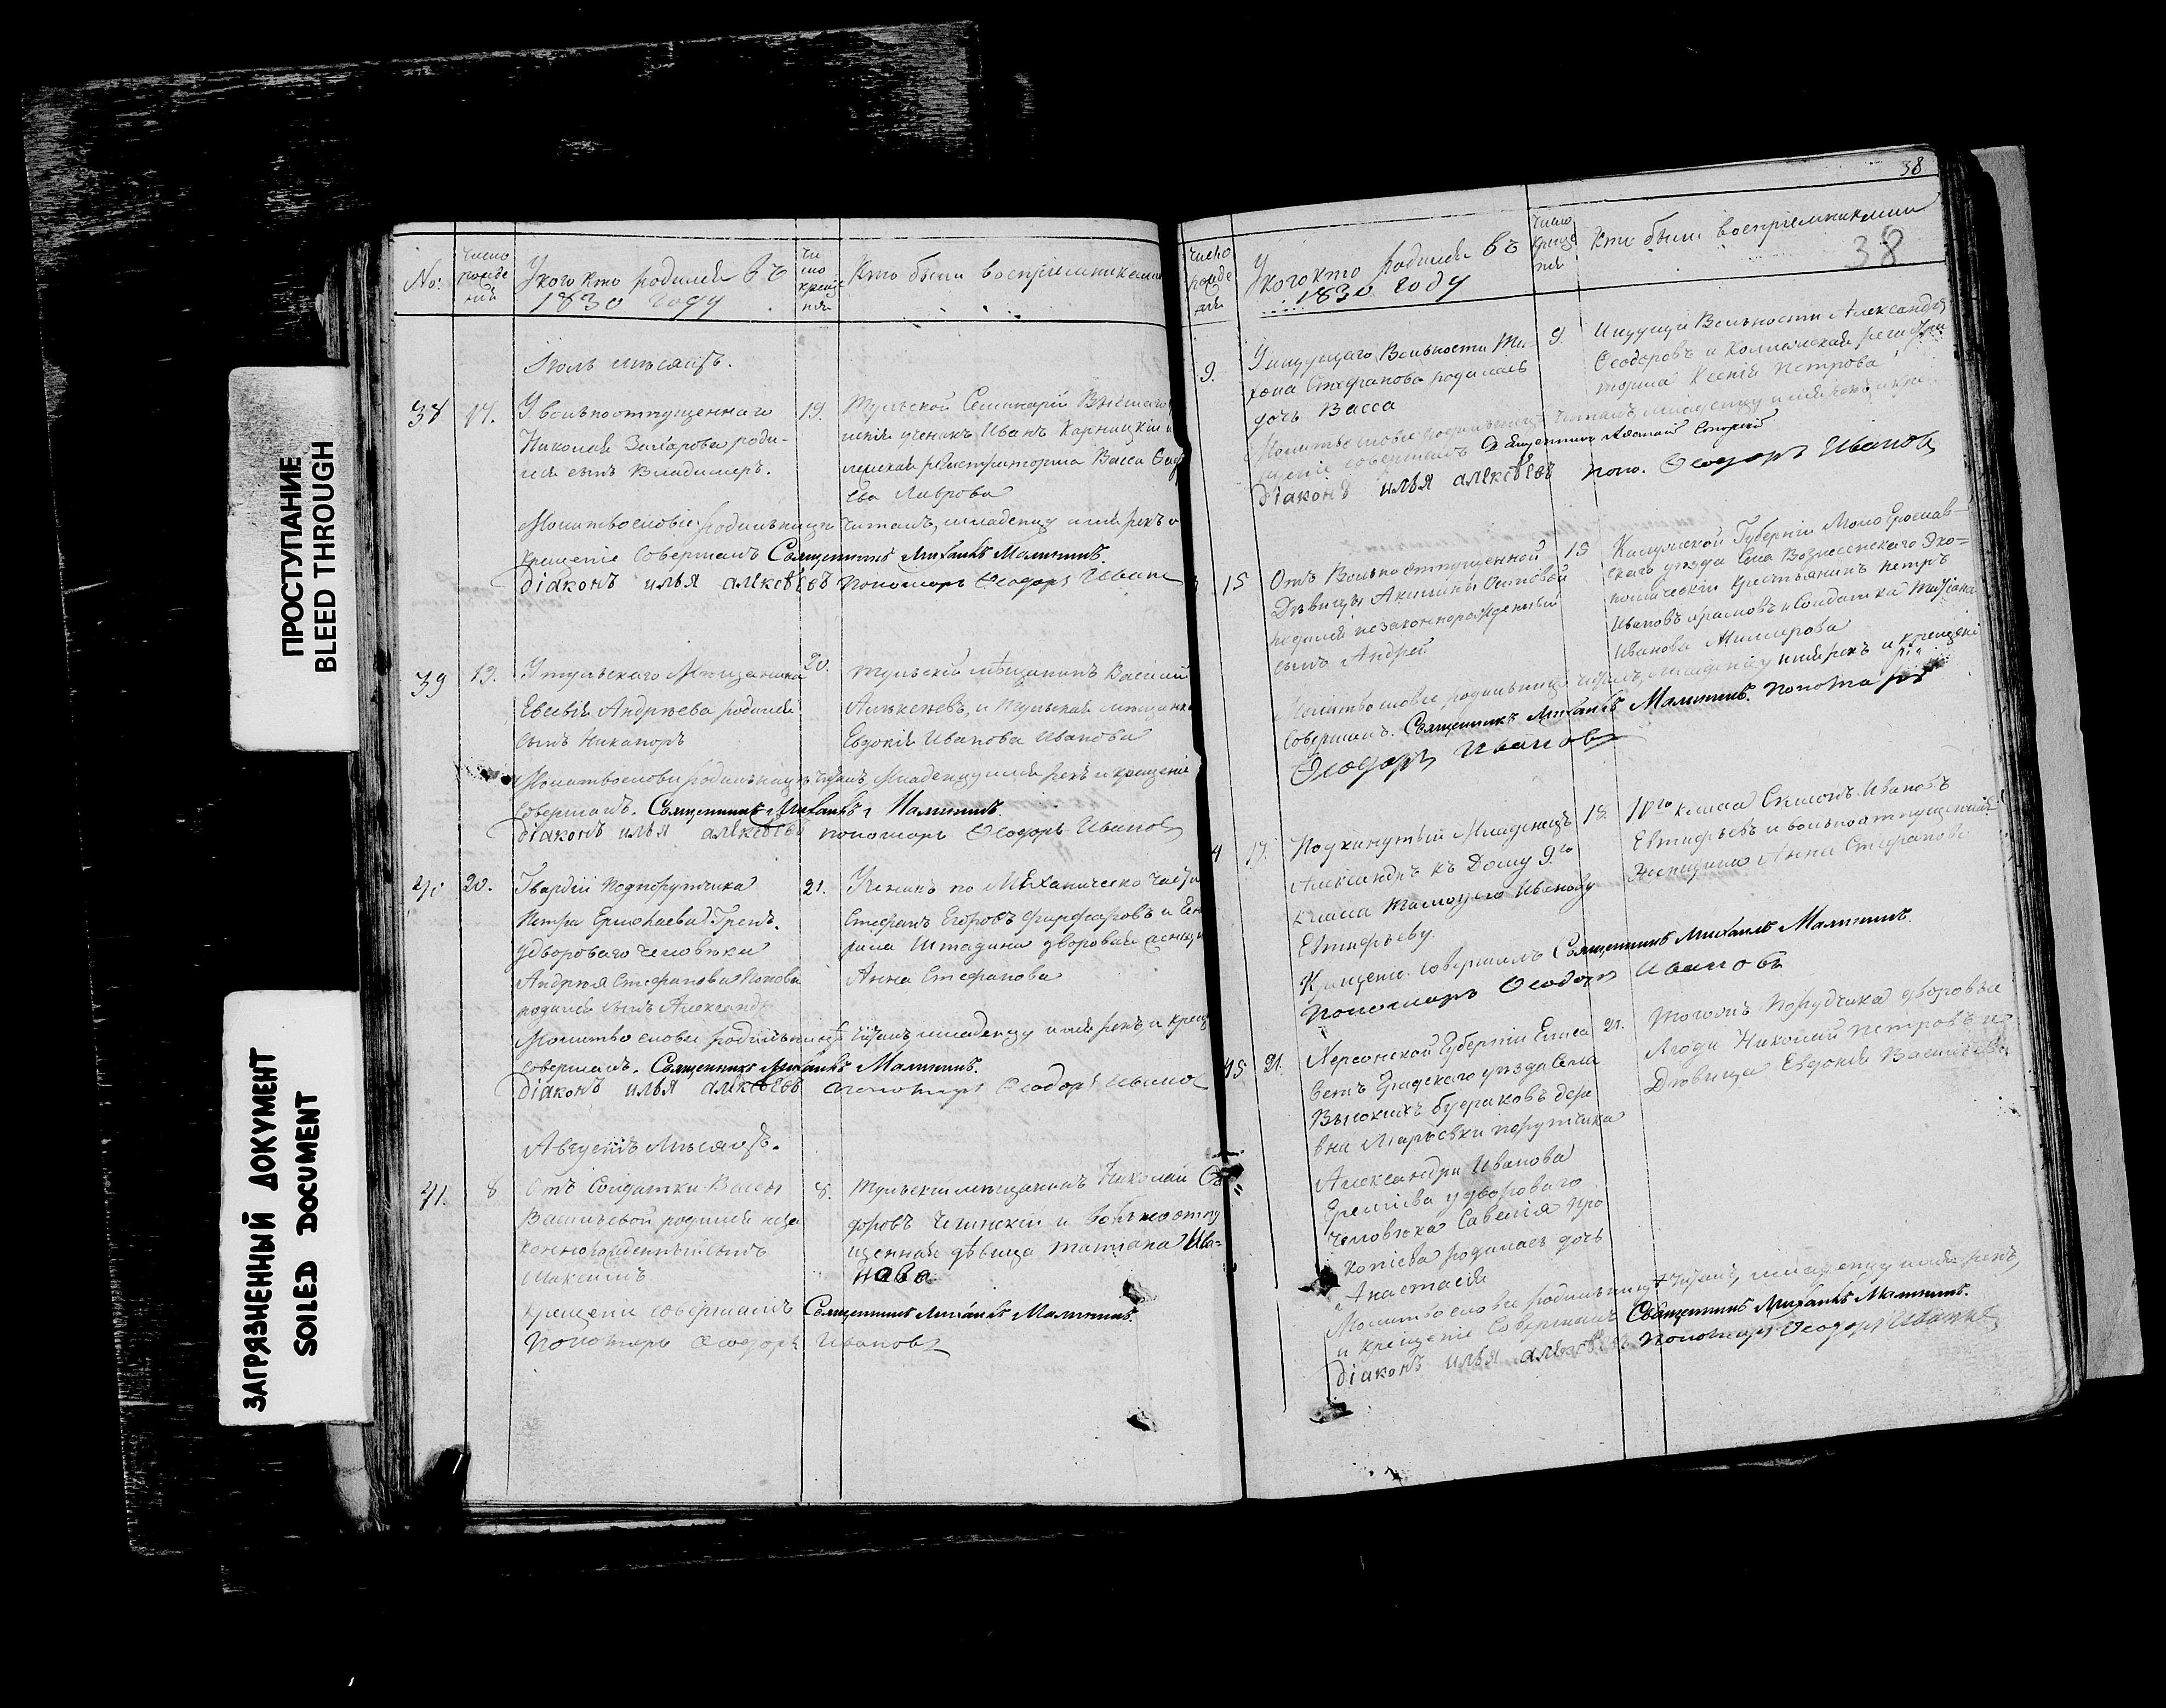 ПРОСТУПАНИЕ
BLEED THROUGH
ЗАГРЯЗНЕННЫЙ ДОКУМЕНТ
SOILED DOCUMENT
No:
число рожде нія
У кого кто родился въ 1830 году
чи сло креще нія
Кто были воспріемниками
Іюль мѣсяцъ.
38
17.
У вольноотпущеннаго
Николая Захарова роди-
лся сынъ Владимиръ.
19.
Тульской Семинаріи Высшаго
ученикъ Иванъ Карницкій и
Васса
ева Лаврова
Молитвословіе родильницѣ читалъ, младенцу имя рекъ и
крещеніе совершалъ Священникъ Михаилъ Малининъ.
Діаконъ илья алексѣевъ Пономарь Ѳеодоръ Иванов
39
19.
У тульскаго Мѣщанина
Евсевія Андрѣева родился
сынъ Никаноръ
20.
тульскій мѣщанинъ Василій
Алексѣевъ, и тульская мѣщанка
Евдокія Иванова Иванова
Молитвословіе родильницѣ читалъ Младенцу имя рекъ и крещеніе
совершалъ. Священникъ Михаилъ Малининъ.
Діаконъ илья алексѣевъ пономарь Ѳеодоръ Иванов
40
20.
Гвардіи Подпорутчика
Петра Ермолаева
у двороваго человѣка
Андрея Стефанова Попова
родился сынъ Александръ
21.
Ученикъ по Механическо части
Стефанъ Егоровъ и Гене
рала Штадена дворовая
Анна Стефанова
Молитвословіе родильницѣ читалъ младенцу имя рекъ и крещ
совершалъ. Священникъ Михаилъ Малининъ.
Діаконъ илья алексѣевъ пономарь Ѳеодоръ Иванов
Августъ Мѣсяцъ.
41.
8
Отъ Солдатки Вассы
Васильевой родился неза
коннорожденный сынъ
Максимъ
8.
Тульскій мѣщанинъ Николай Ѳе
доровъ и вольноотпу
щенная дѣвица Татіана Ива-
нова
крещеніе совершалъ Священникъ Михаилъ Малининъ.
Пономарь Ѳеодоръ Ивановъ
38
38
число рожде нія
У кого кто родился въ 1830 году
число креще нія
Кто были воспріемниками
9.
У ищущаго Вольности Ти-
хона Стефанова родилась
дочь Васса
9.
Ищущій Вольности Александръ
Ѳеодоровъ и Коллежская регистра
торша Ксенія Петрова
Молитвословіе родильницѣ читалъ, младенцу имя рекъ и кре
щеніе совершалъ Священникъ
Діаконъ илья алексѣевъ поно. Ѳеодоръ Иванов
15
Отъ Вольноотпущенной
Дѣвицы Акилины
родился незаконнорожденный
сынъ Андрей
15
Калужской Губерніи Мало Ярослав-
скаго уѣзда Села Вознесенскаго Эко-
номическій крестьянинъ Петръ
Ивановъ и Солдатка Татіана
Иванова Миллерова
Молитвословіе родильницѣ читалъ, младенцу имя рекъ и крещеніе
совершалъ. Священникъ Михаилъ Малининъ. Пономарь
Ѳеодоръ Иванов
17.
Подкинутый Младенецъ
Александръ къ Дому 9го
класса Иванову
Евтифѣеву.
18.
10го класса Симонъ Ивановъ
Евтифѣевъ и вольноотпущенная
женщина Анна Стефанова
Крещеніе совершалъ Священникъ Михаилъ Малининъ.
Пономарь Ѳеодоръ Ивановъ
45
21.
Херсонской Губерніи Елиса
ветъ Градскаго уѣзда Села
Высокихъ буераковъ дере
вни Марьевки порутчика
Александра Иванова
у двороваго
человѣка Савелія Про
копіева родилась дочь
Анастасія
21.
Порудчика дворовые
Люди Николай Петровъ и
Дѣвица Евдокія Васильева
Молитвословіе родильницѣ читалъ, младенцу имя рекъ,
и крещеніе совершалъ Священникъ Михаилъ Малининъ.
Діаконъ илья алексѣевъ Пономарь Ѳеодоръ Иванов